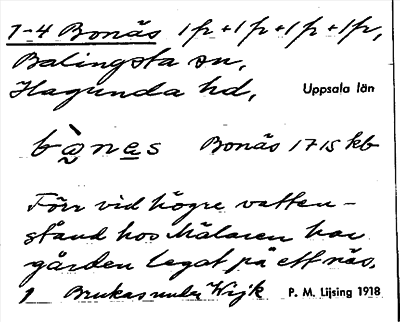 1-4 Bonäs 1/2 + 1/2 + 1/2 + 1/2,
Balingsta sn,
Hagunda hd, Uppsala län
bànes Bonäs 1715 kb
Förr vid högre vatten-
stånd hos Mälaren har
gården legat på ett näs.
1 Brukas under Wijk P. M. Lijsing 1918